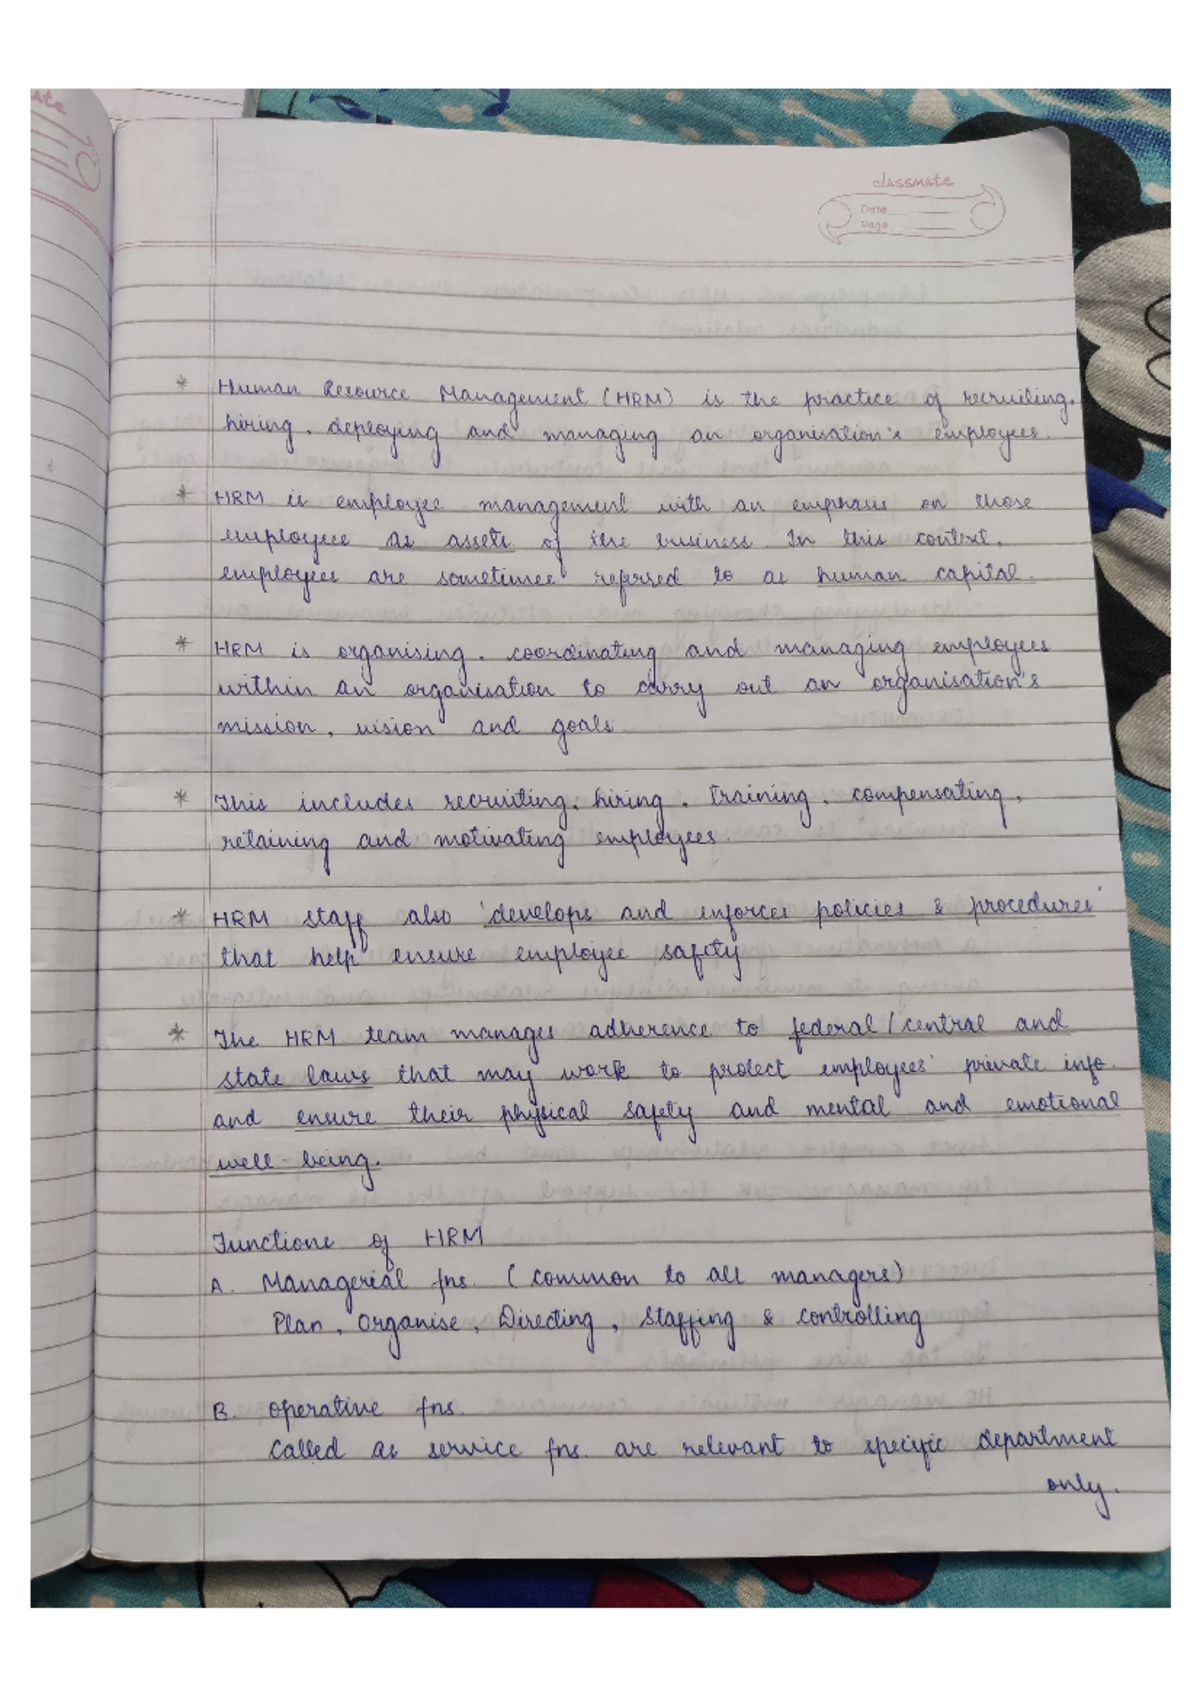 classmate
Date
Page
* Human Resource Management (HRM) is the practice of recruiting,
hiring, deploying and managing an organisation's employees.
* HRM is employee management with an emphasis on those
employees as assets of the business. In this context,
employees are sometimes referred to as human capital.
* HRM is organising, coordinating and managing employees
within an organisation to carry out an organisation's
mission, vision and goals
* This includes recruiting, hiring, training, compensating,
retaining and motivating employees.
* HRM staff also 'develops and enforces policies & procedures'
that help ensure employee safety
* The HRM team manages adherence to federal / central and
state laws that may work to protect employees' private info.
and ensure their physical safety and mental and emotional
well-being.
Functions of HRM
A. Managerial fns. (common to all managers)
Plan, Organise, Directing, Staffing & controlling
B. operative fns.
called as service fns. are relevant to specific department
only.